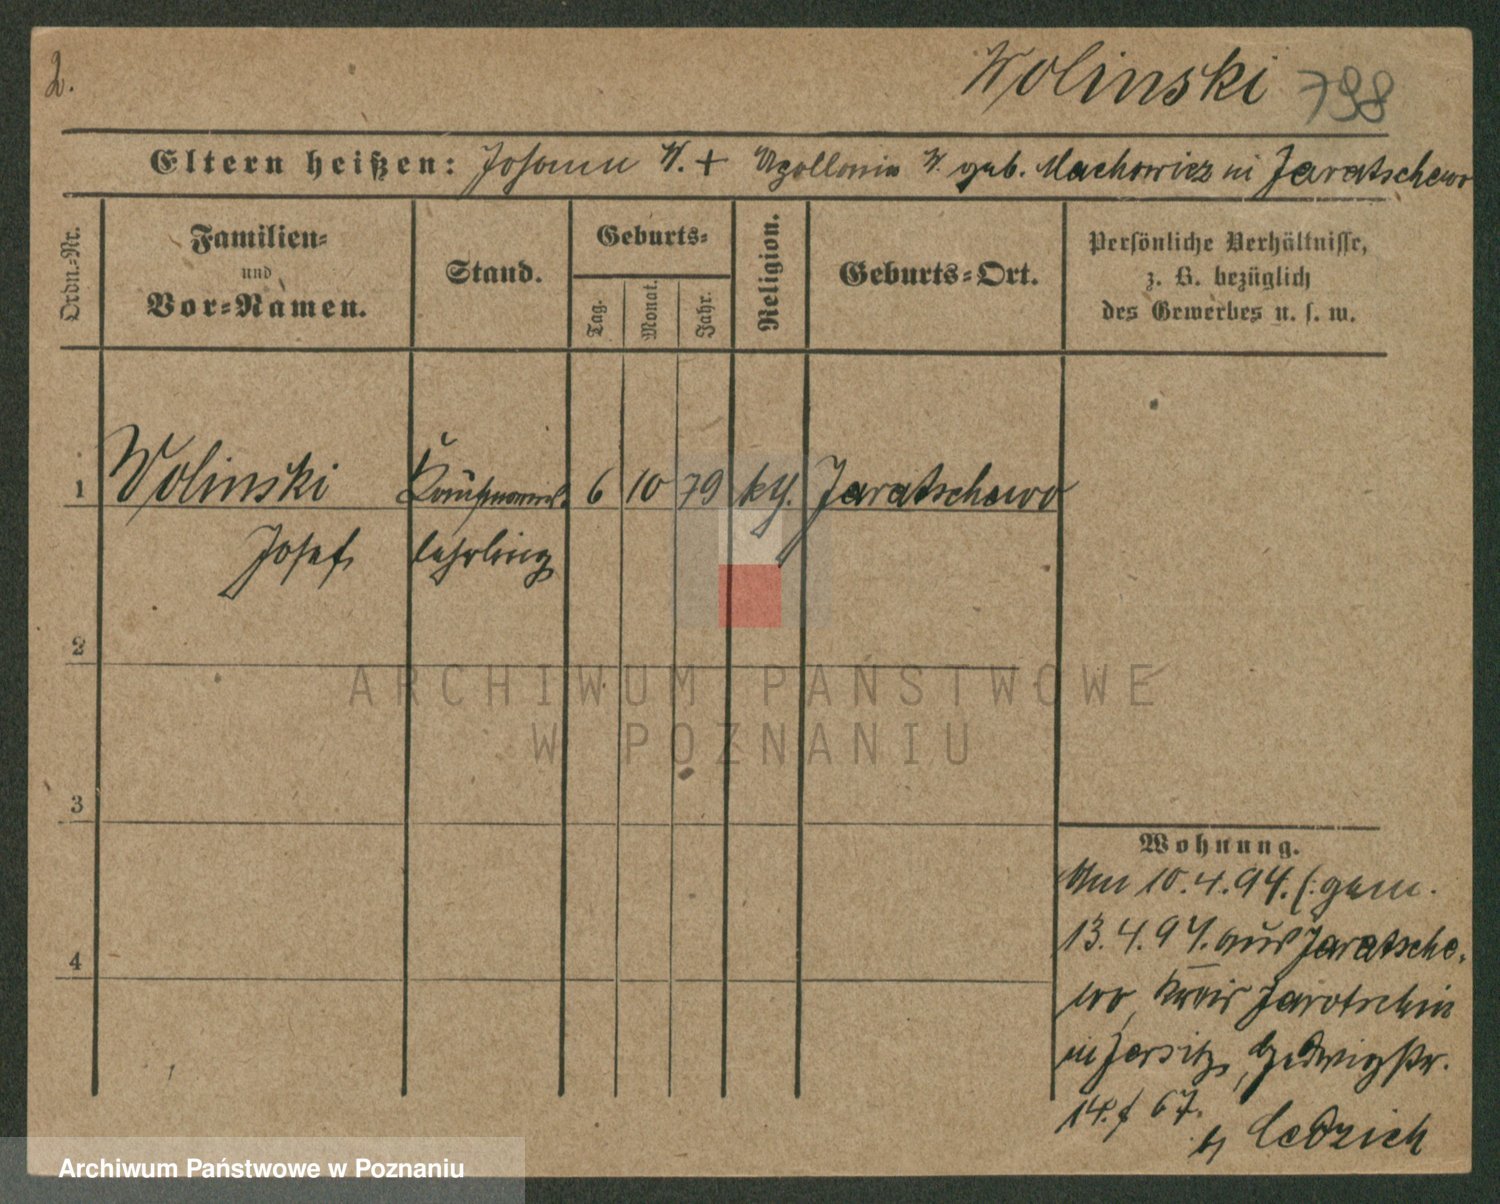 2.
Wolinski 798
Eltern heißen: Johann W. + Apollonia W. geb. Machowicz in Jaratschewo
Ordn.-Nr.
Familien-
und
Vor-Namen.
Stand.
Geburts-
Tag.
Monat.
Jahr.
Religion.
Geburts-Ort.
Persönliche Verhältnisse,
z. B. bezüglich
des Gewerbes u. s. w.
1 Wolinski Kaufmanns- 6 10 79 kth. Jaratschewo
Josef lehrling
2
3
4
Wohnung.
Am 10.4.94. (: gem.
13.4.94. aus Jaratsche-
wo, Kreis Jarotschin
in Jersitz, Hedwigstr.
14. f 67.
b/ Cedzich
ARCHIWUM PAŃSTWOWE
W POZNANIU
Archiwum Państwowe w Poznaniu